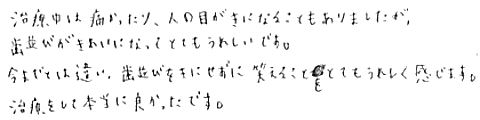 治療中は痛かったり、人の目がきになることもありましたが、
歯並びがきれいになってとてもうれしいです。
今までとは違い、歯並びをきにせずに笑えることをとてもうれしく感じます。
治療をして本当に良かったです。